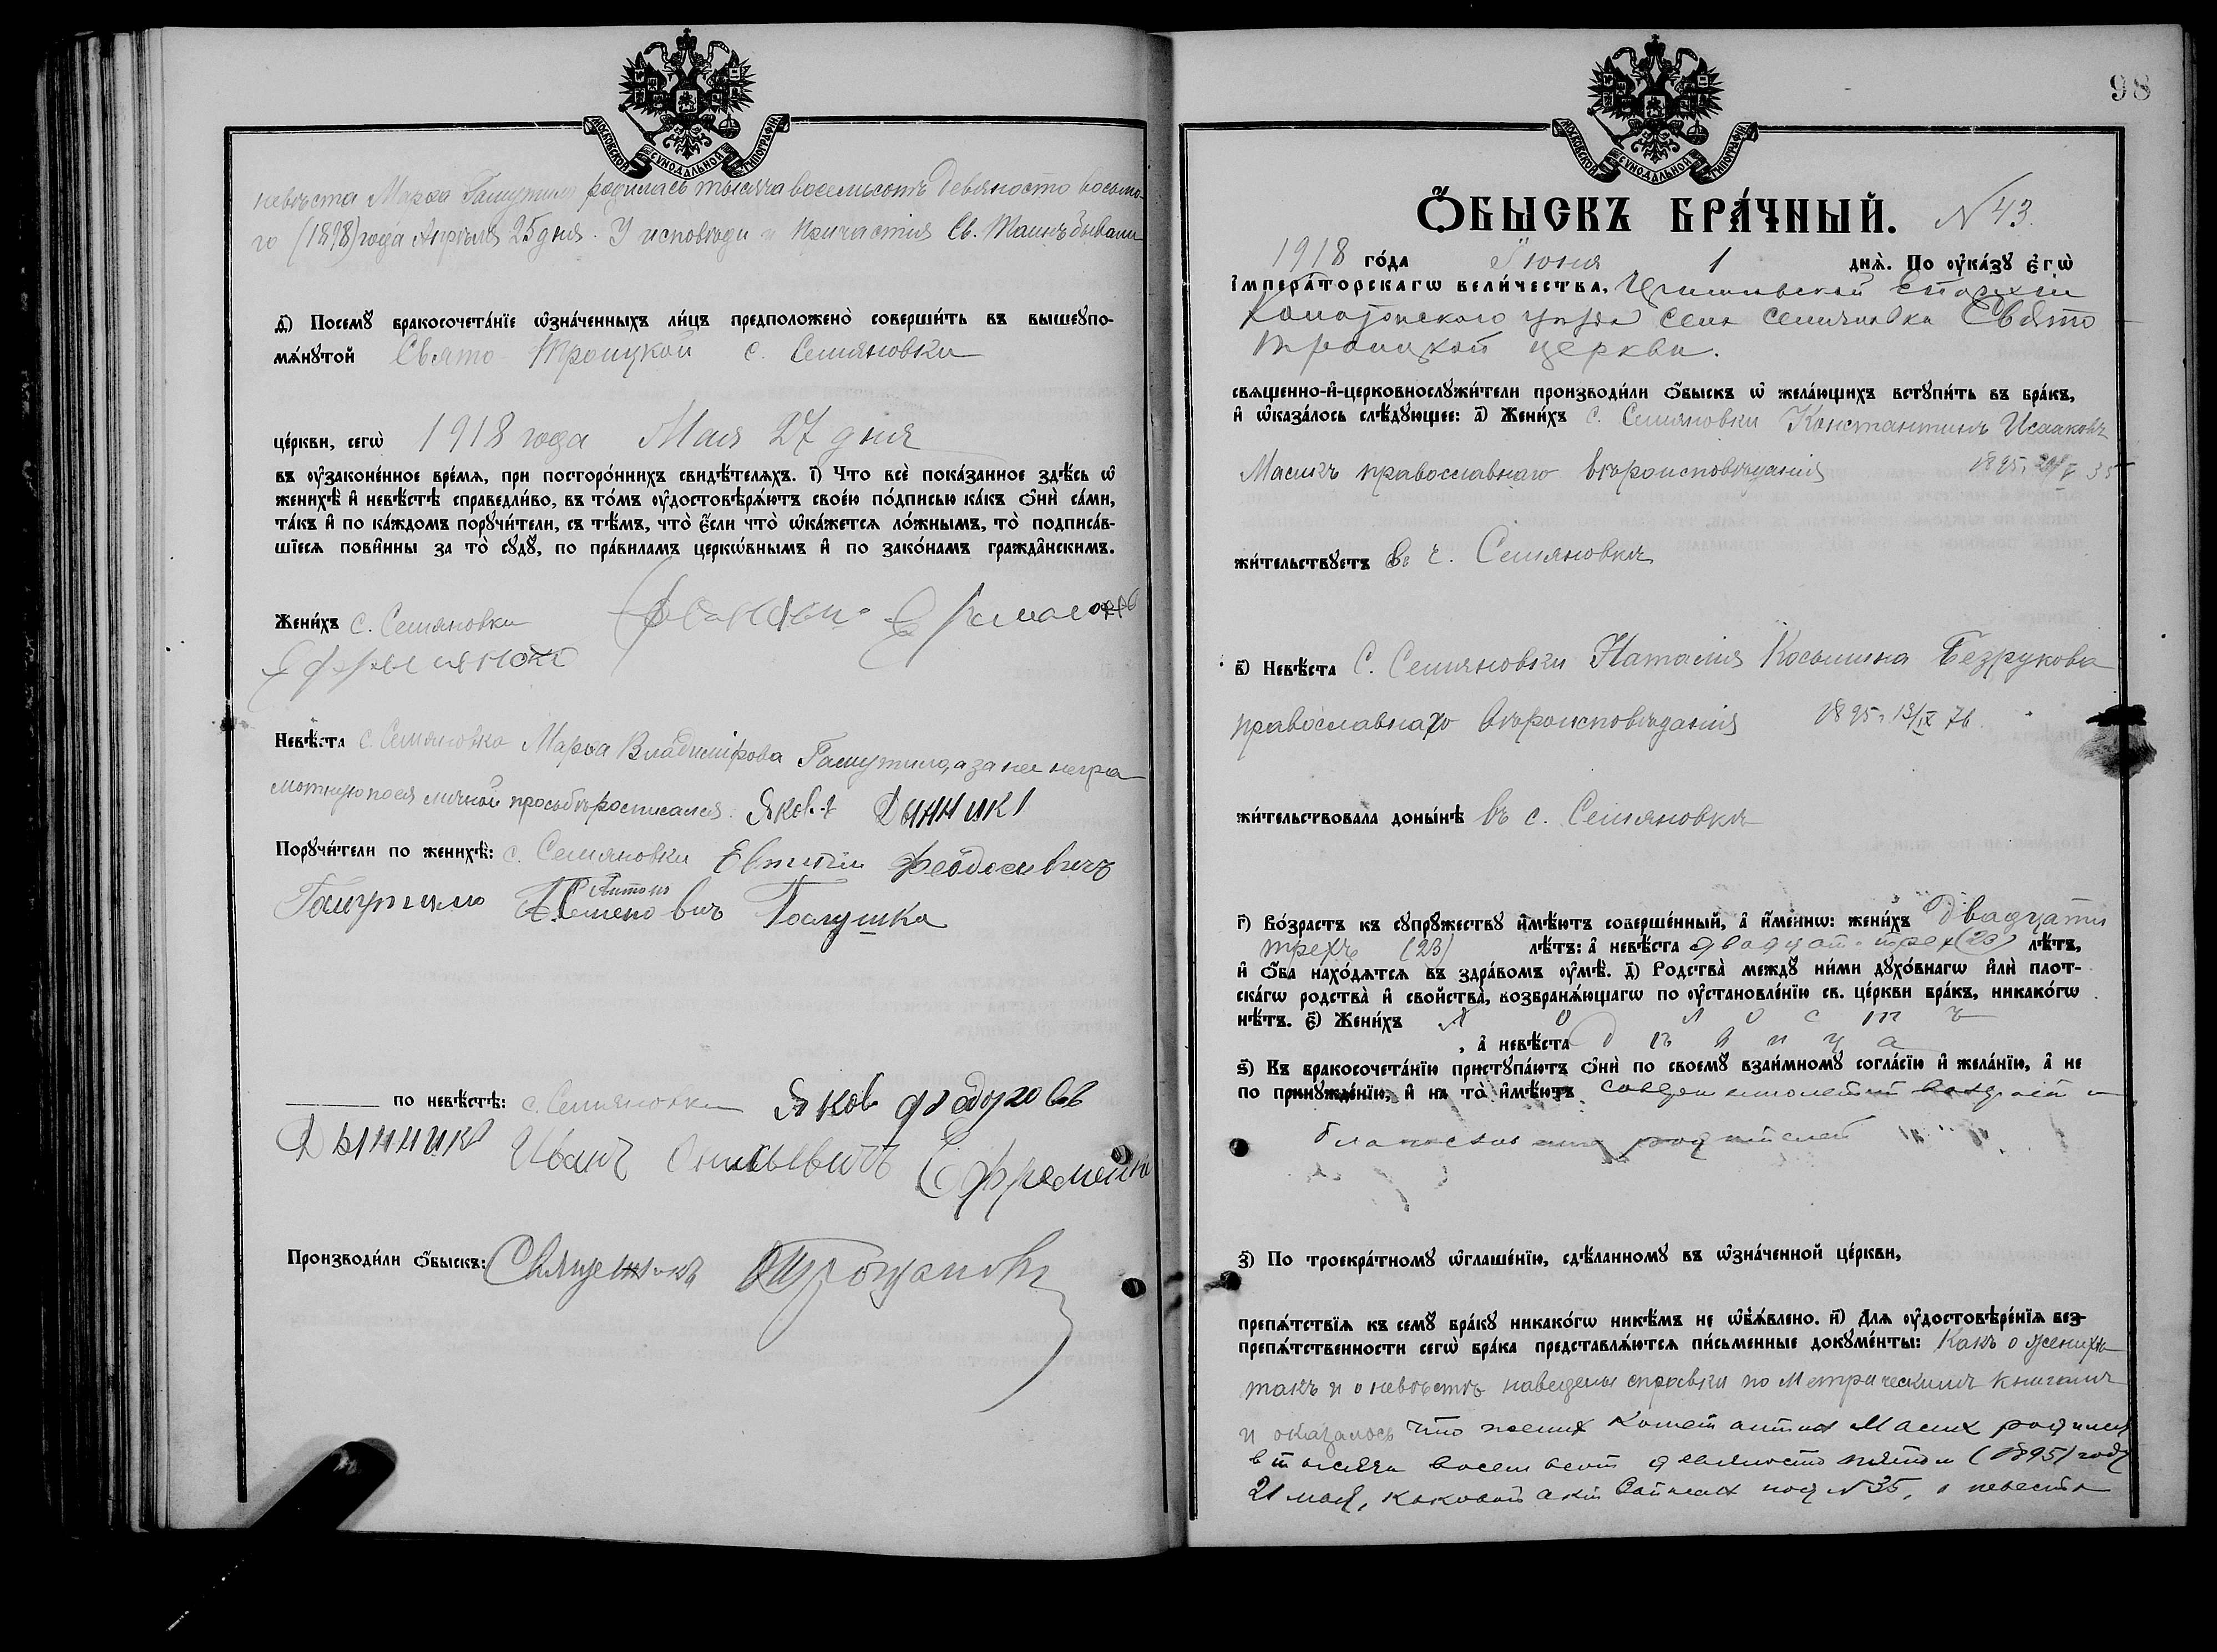 МОСКОВСКОЙ СѴНОДАЛЬНОЙ ТИПОГРАФІИ
невѣста Марѳа Гамутило родилась тысяча восемьсотъ девяносто восьмо-
го (1898) года Апрѣля 25 дня. У исповѣди и Причастія Св. Таинъ бывали
д҃) Посемꙋ бракосочета́нїе ѡ҆зна́ченныхъ ли́цъ предположено̀ соверши́ть въ вышеꙋпо-
мѧ́нꙋтой Свято Троицкой с. Семяновки
це́ркви, сегѡ̀ 1918 года Мая 27 дня
въ ᲂу҆законе́нное вре́мѧ, при посторо́ннихъ свидѣ́телѧхъ. і҃) Что всѐ пока́занное здѣ́сь ѡ҆
женихѣ̀ и҆ невѣ́стѣ справедли́во, въ то́мъ ᲂу҆достовѣрѧ́ютъ свое́ю по́дписью ка́къ ѻ҆нѝ са́ми,
та́къ и҆ по ка́ждомъ порꙋчи́тели, съ тѣ́мъ, что̀ є҆́сли что̀ ѡ҆ка́жетсѧ ло́жнымъ, то̀ подписа́в-
шїесѧ пови́нны за то̀ сꙋдꙋ̀, по пра́виламъ церкѡ́внымъ и҆ по зако́намъ гражда́нскимъ.
Жени́хъ с. Семяновки
Невѣ́ста с. Семяновка Марѳа Владимірова Гамутило, а за нее негра-
мотную по ея личной просьбѣ росписался Яковъ Дынникъ
Порꙋчи́тели по женихѣ̀: с. Семяновки Евтихий Феодосиевичъ
Гамутило Антонъ Семенович Галушка
по невѣ́стѣ: с. Семяновки Яков Федоровъ
Дынникъ Иванъ Ефременко
Производи́ли ѻ҆́быскъ: Священникъ
98
МОСКОВСКОЙ СѴНОДАЛЬНОЙ ТИПОГРАФІИ
Ѻ҆́БЫСКЪ БРА́ЧНЫЙ. N 43.
1918 го́да Іюня 1 днѧ̀. По ᲂу҆ка́зꙋ є҆гѡ̀
і҆мпера́торскагѡ вели́чества, Черниговской Епархии
Конотопского уезда села Семяновки Свято
Троицкой церкви.
свѧщенно-и҆-церковнослꙋжи́тели производи́ли ѻ҆́быскъ ѡ҆ жела́ющихъ встꙋпи́ть въ бра́къ,
и҆ ѡ҆каза́лось слѣ́дꙋющее: а҃) Жени́хъ с. Семяновки Константинъ Исааковъ
Масикъ православнаго вѣроисповѣданія 1895. 21/V 35
жи́тельствꙋетъ въ с. Семяновкѣ
в҃) Невѣ́ста с. Семяновки Наталия Косьмина Безрукова
православнаго вѣроисповѣданія 1895. 13/IX 76
жи́тельствовала доны́нѣ въ с. Семяновкѣ
г҃) Во́зрастъ къ сꙋпрꙋ́жествꙋ и҆мѣ́ютъ соверше́нный, а҆ и҆́меннѡ: жени́хъ двадцати
трехъ (23) лѣ́тъ: а҆ невѣ́ста двадцати трех (23) лѣ́тъ,
и҆ ѻ҆́ба нахо́дѧтсѧ въ здра́вомъ ᲂу҆мѣ̀. д҃) Родства̀ междꙋ̀ ни́ми дꙋхо́внагѡ и҆лѝ плот-
ска́гѡ родства̀ и҆ свойства̀, возбранѧ́ющагѡ по ᲂу҆становле́нїю св. це́ркви бра́къ, никако́гѡ
нѣ́тъ. є҃) Жени́хъ холостъ
, а҆ невѣ́ста дѣвица
ѕ҃) Къ бракосочета́нїю пристꙋпа́ютъ ѻ҆нѝ по своемꙋ̀ взаи́мномꙋ согла́сїю и҆ жела́нїю, а҆ не
по принꙋжде́нїю, и҆ на то̀ и҆мѣ́ютъ совершеннолетний возраст и
благословение родителей
з҃) По троекра́тномꙋ ѡ҆глаше́нїю, сдѣ́ланномꙋ въ ѡ҆зна́ченной це́ркви,
препѧ́тствїѧ къ семꙋ̀ бра́кꙋ никако́гѡ никѣ́мъ не ѡ҆б̾ѧ́влено. и҃) Длѧ ᲂу҆достовѣре́нїѧ без-
препѧ́тственности сегѡ̀ бра́ка представлѧ́ютсѧ пи́сьменные докꙋме́нты: Какъ о женихѣ
такъ и о невѣстѣ наведены справки по Метрическимъ книгамъ
и оказалось что жених Константин Масик родился
в тысяча восемьсот девяносто пятом (1895) году
21 мая, каковой акт записан под N 35, а невеста